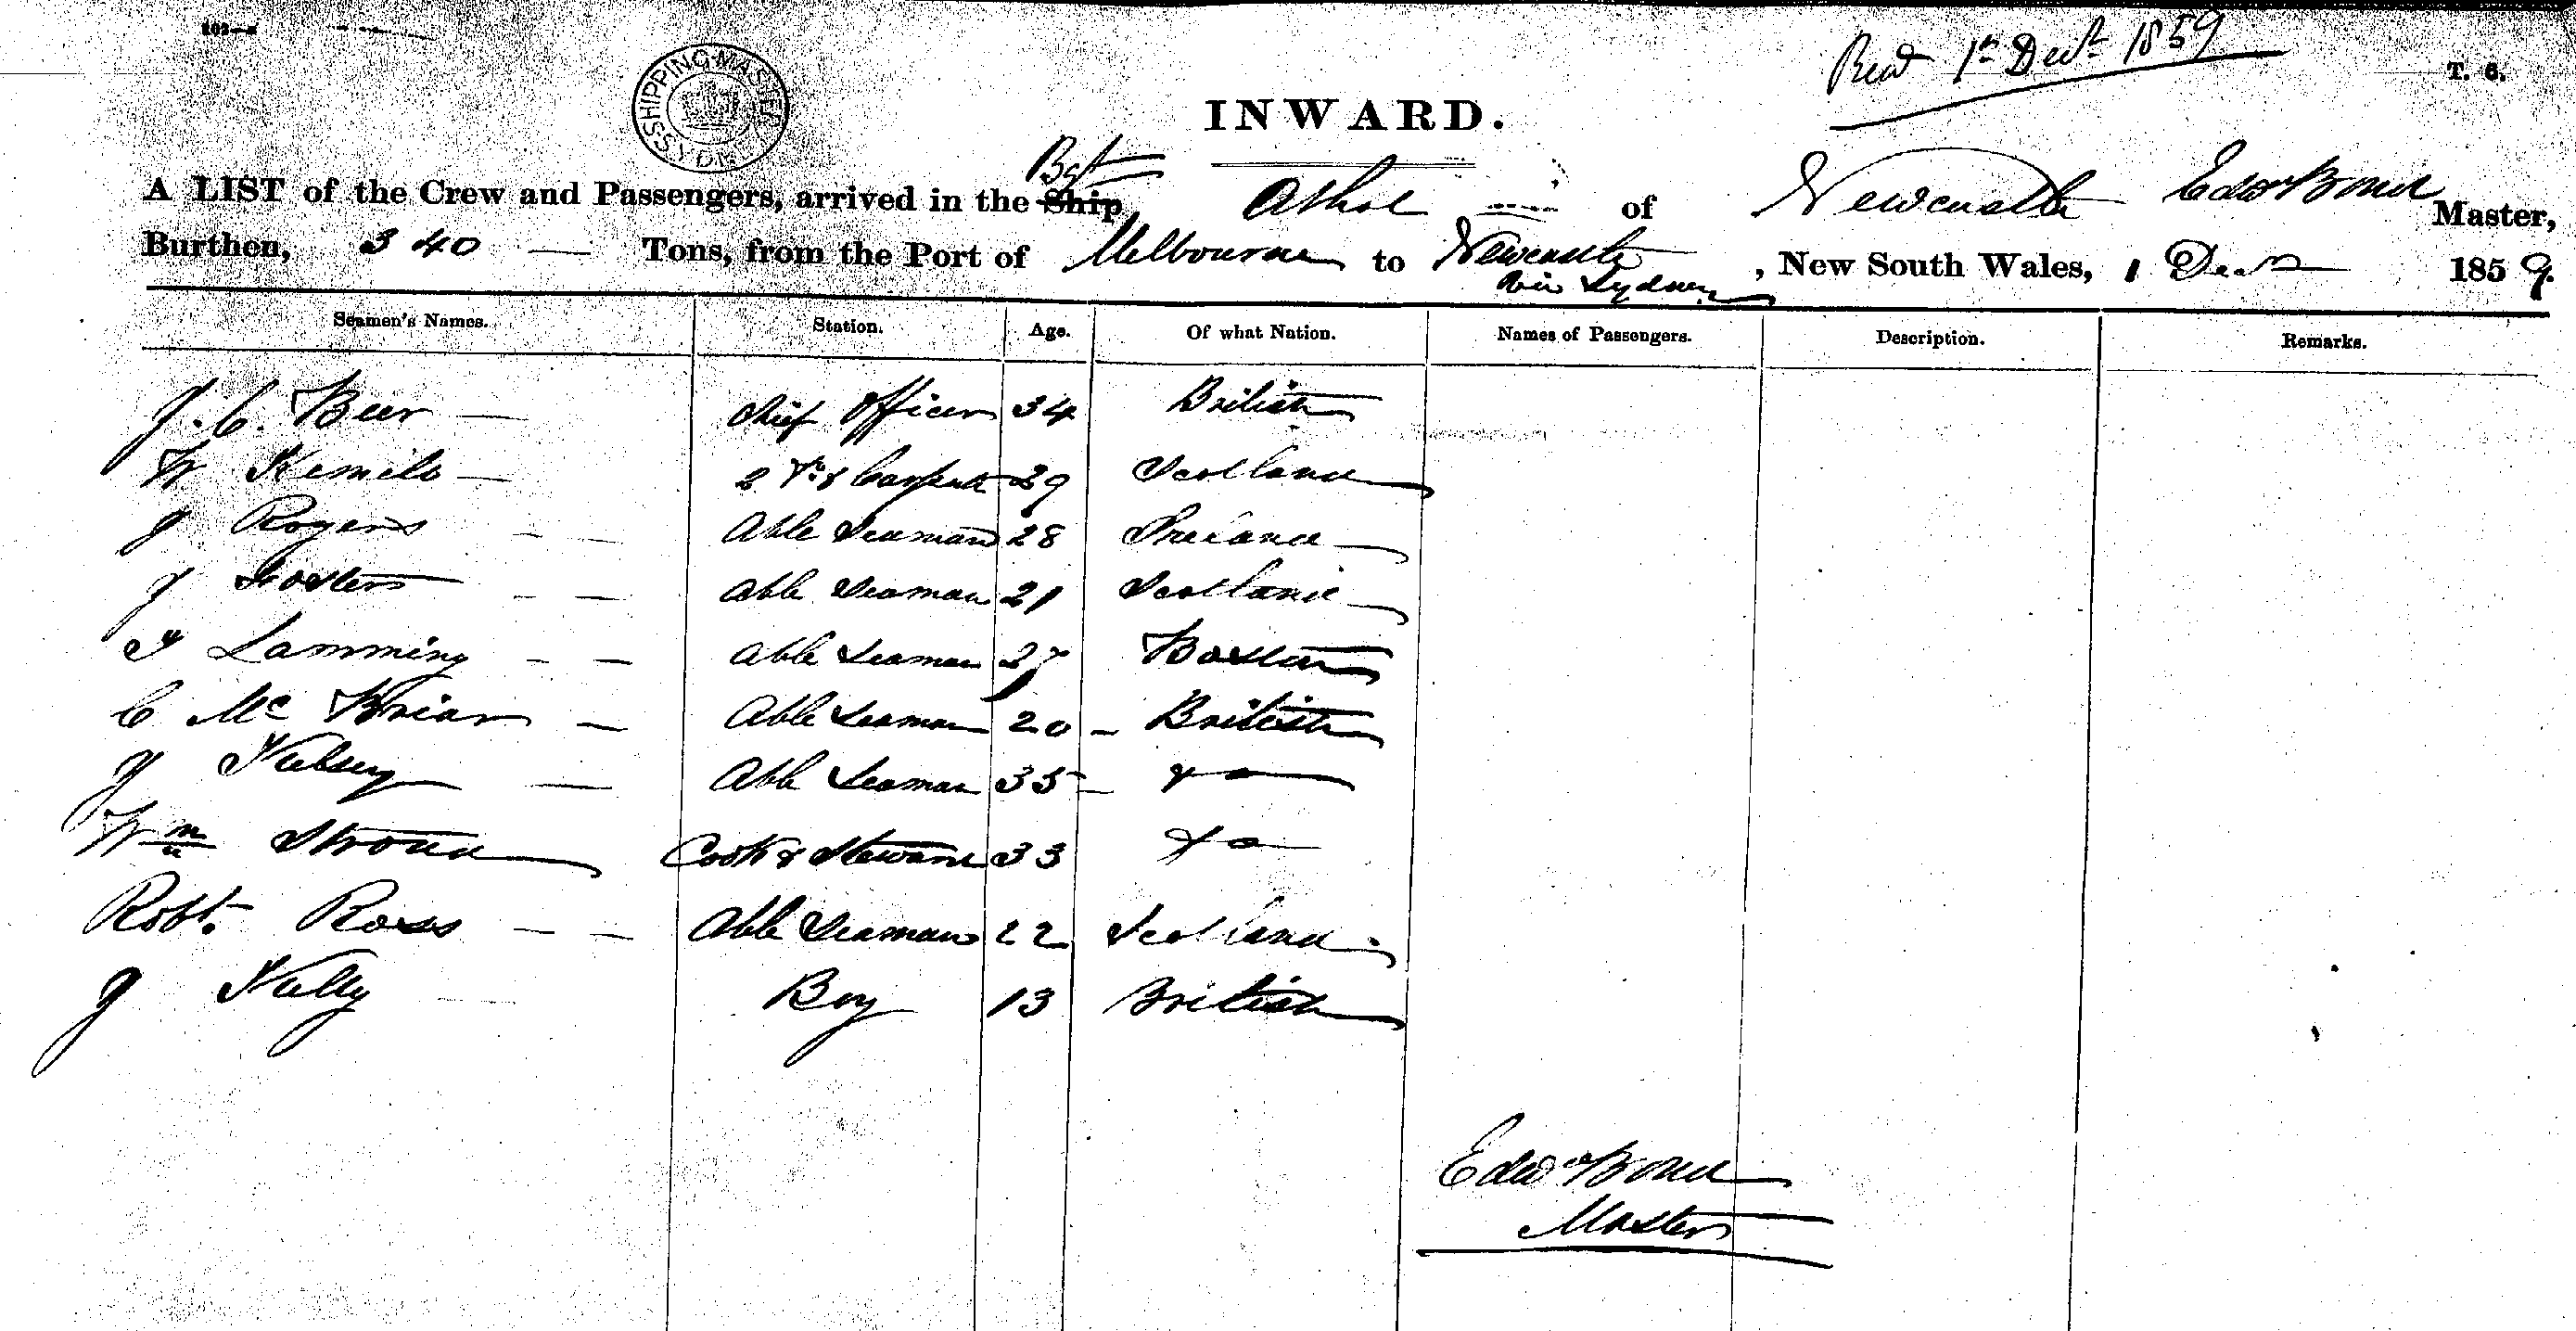 Recd 1st Decr 1859
T. 6.
SHIPPING MASTER SYDNEY
INWARD.
A LIST of the Crew and Passengers, arrived in the Ship Bqt Athol of Newcastle Edwd Bond Master,
Burthen, 340 Tons, from the Port of Melbourne to Newcastle via Sydney, New South Wales, 1 Decr 1859
Seamen's Names. Station. Age. Of what Nation. Names of Passengers. Description. Remarks.
J. C. Beer Chief Officer 34 British
W 29 Scotland
J Rogers Able Seaman 28 Ireland
J Foster Able Seaman 21 Scotland
Lamming Able Seaman 27 Boston
C Mc Brian Able Seaman 20 British
J Able Seaman 35 do
Wm Stroud Cook & Steward 33 do
Robt. Ross Able Seaman 22 Scotland
J Boy 13 British
Edwd Bond
Master